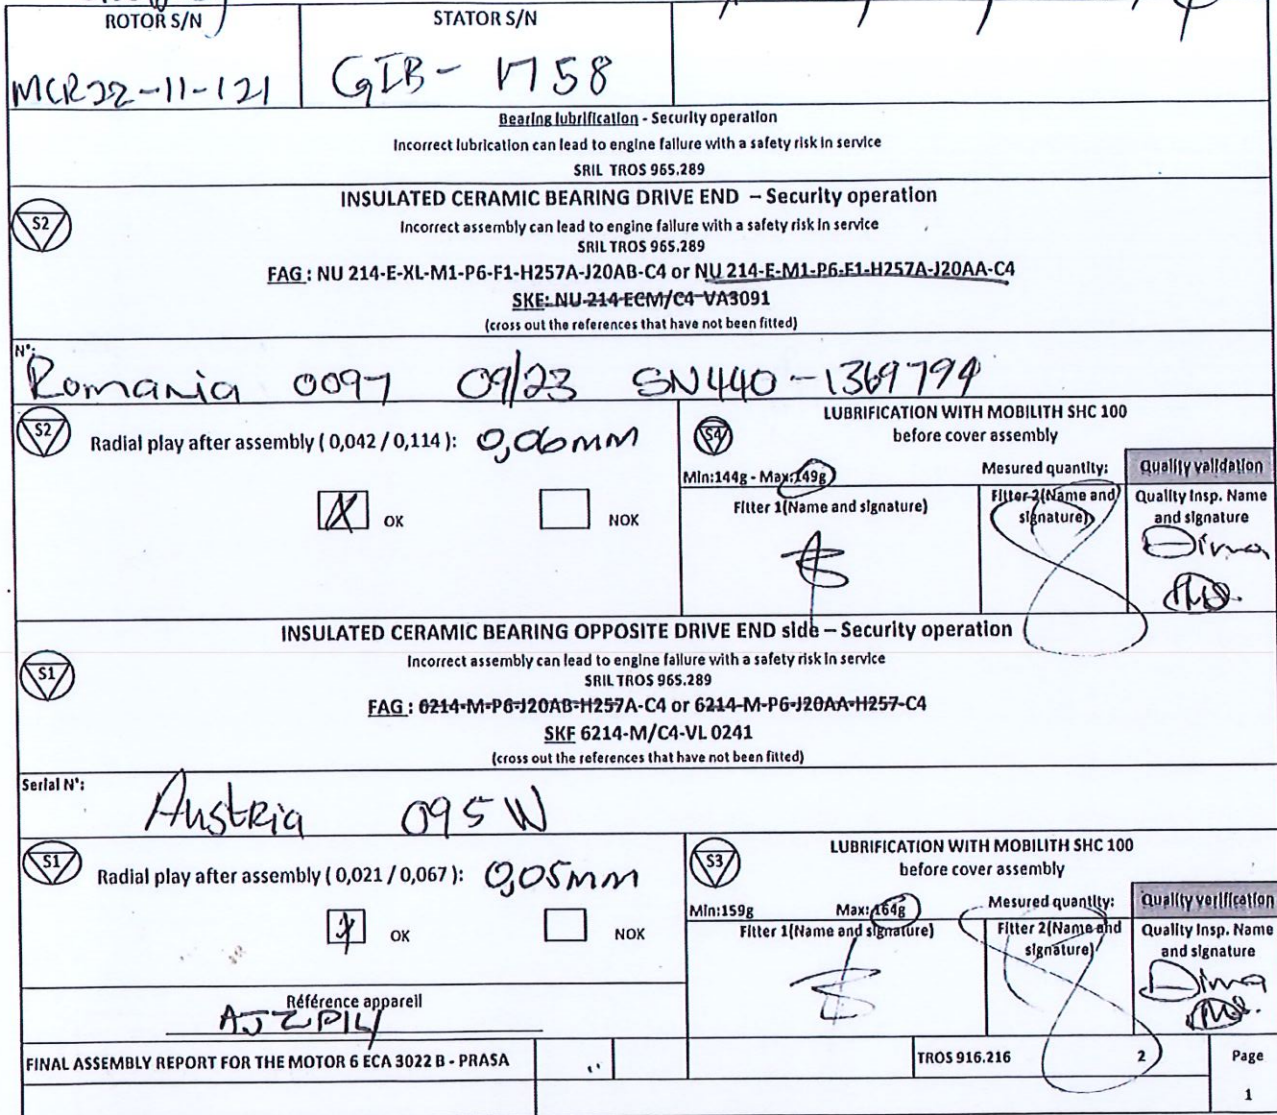 ROTOR S/N
STATOR S/N
MCR22-11-121
GIB- 1758
Bearing lubrification - Security operation
Incorrect lubrication can lead to engine failure with a safety risk in service
SRIL TROS 965.289
S2
INSULATED CERAMIC BEARING DRIVE END – Security operation
Incorrect assembly can lead to engine failure with a safety risk in service
SRIL TROS 965.289
FAG : NU 214-E-XL-M1-P6-F1-H257A-J20AB-C4 or NU 214-E-M1-P6-F1-H257A-J20AA-C4
SKF: NU-214-ECM/C4-VA3091
(cross out the references that have not been fitted)
N°:
Romania 0097 09/23 SN440-1369794
S2
Radial play after assembly ( 0,042 / 0,114 ): 0,06mm
X OK
NOK
S4
LUBRIFICATION WITH MOBILITH SHC 100
before cover assembly
Min:144g - Max:149g
Mesured quantity:
Quality validation
Fitter 1(Name and signature)
Fitter 2(Name and signature)
Quality Insp. Name and signature
Dima
INSULATED CERAMIC BEARING OPPOSITE DRIVE END side – Security operation
S1
Incorrect assembly can lead to engine failure with a safety risk in service
SRIL TROS 965.289
FAG : 6214-M-P6-J20AB-H257A-C4 or 6214-M-P6-J20AA-H257-C4
SKF 6214-M/C4-VL 0241
(cross out the references that have not been fitted)
Serial N°:
Austria 095 W
S1
Radial play after assembly ( 0,021 / 0,067 ): 0,05mm
X OK
NOK
Référence appareil
S3
LUBRIFICATION WITH MOBILITH SHC 100
before cover assembly
Min:159g Max:164g
Mesured quantity:
Quality verification
Fitter 1(Name and signature)
Fitter 2(Name and signature)
Quality Insp. Name and signature
Dima
FINAL ASSEMBLY REPORT FOR THE MOTOR 6 ECA 3022 B - PRASA
TROS 916.216
2
Page
1